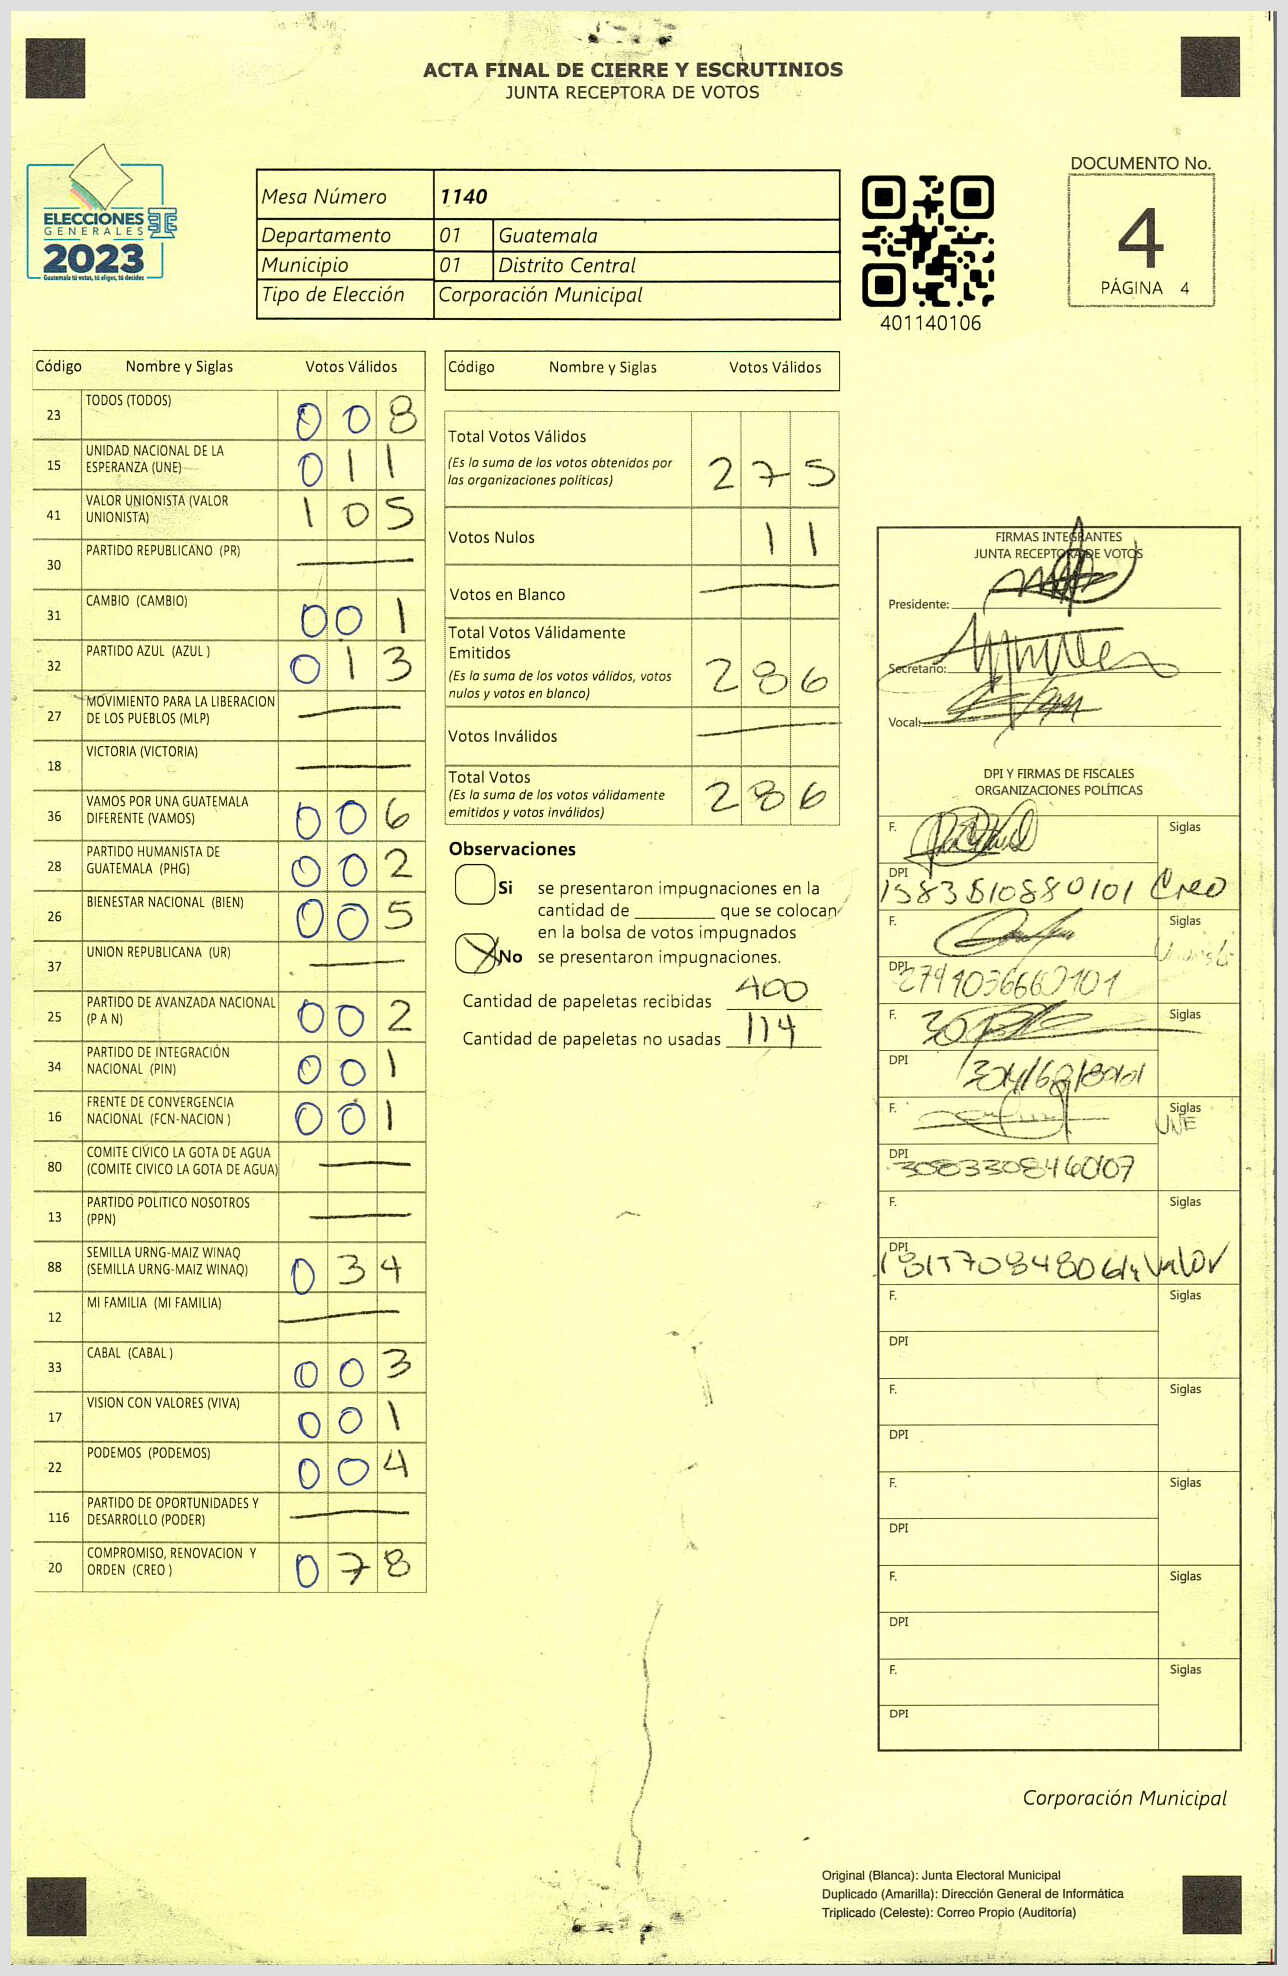 ACTA FINAL DE CIERRE Y ESCRUTINIOS
JUNTA RECEPTORA DE VOTOS
ELECCIONES
GENERALES
2023
Guatemala tú votas, tú eliges, tú decides
Mesa Número 1140
Departamento 01 Guatemala
Municipio 01 Distrito Central
Tipo de Elección Corporación Municipal
401140106
DOCUMENTO No.
4
PÁGINA 4
Código Nombre y Siglas Votos Válidos
23 TODOS (TODOS) 0 0 8
15 UNIDAD NACIONAL DE LA ESPERANZA (UNE) 0 1 1
41 VALOR UNIONISTA (VALOR UNIONISTA) 1 0 5
30 PARTIDO REPUBLICANO (PR) —
31 CAMBIO (CAMBIO) 0 0 1
32 PARTIDO AZUL (AZUL ) 0 1 3
27 MOVIMIENTO PARA LA LIBERACION DE LOS PUEBLOS (MLP) —
18 VICTORIA (VICTORIA) —
36 VAMOS POR UNA GUATEMALA DIFERENTE (VAMOS) 0 0 6
28 PARTIDO HUMANISTA DE GUATEMALA (PHG) 0 0 2
26 BIENESTAR NACIONAL (BIEN) 0 0 5
37 UNION REPUBLICANA (UR) —
25 PARTIDO DE AVANZADA NACIONAL (P A N) 0 0 2
34 PARTIDO DE INTEGRACIÓN NACIONAL (PIN) 0 0 1
16 FRENTE DE CONVERGENCIA NACIONAL (FCN-NACION ) 0 0 1
80 COMITE CIVICO LA GOTA DE AGUA (COMITE CIVICO LA GOTA DE AGUA) —
13 PARTIDO POLITICO NOSOTROS (PPN) —
88 SEMILLA URNG-MAIZ WINAQ (SEMILLA URNG-MAIZ WINAQ) 0 3 4
12 MI FAMILIA (MI FAMILIA) —
33 CABAL (CABAL ) 0 0 3
17 VISION CON VALORES (VIVA) 0 0 1
22 PODEMOS (PODEMOS) 0 0 4
116 PARTIDO DE OPORTUNIDADES Y DESARROLLO (PODER) —
20 COMPROMISO, RENOVACION Y ORDEN (CREO ) 0 7 8
Código Nombre y Siglas Votos Válidos
Total Votos Válidos
(Es la suma de los votos obtenidos por
las organizaciones políticas) 2 7 5
Votos Nulos 1 1
Votos en Blanco —
Total Votos Válidamente
Emitidos
(Es la suma de los votos válidos, votos
nulos y votos en blanco) 2 8 6
Votos Inválidos —
Total Votos
(Es la suma de los votos válidamente
emitidos y votos inválidos) 2 8 6
Observaciones
Si se presentaron impugnaciones en la
cantidad de ________ que se colocan
en la bolsa de votos impugnados
X No se presentaron impugnaciones.
Cantidad de papeletas recibidas 400
Cantidad de papeletas no usadas 114
FIRMAS INTEGRANTES
JUNTA RECEPTORA DE VOTOS
Presidente:
Secretario:
Vocal:
DPI Y FIRMAS DE FISCALES
ORGANIZACIONES POLÍTICAS
F. Siglas
DPI Creo
F. Siglas
DPI
F. Siglas
DPI
F. Siglas
UNE
DPI
F. Siglas
DPI Valor
F. Siglas
DPI
F. Siglas
DPI
F. Siglas
DPI
F. Siglas
DPI
F. Siglas
DPI
Corporación Municipal
Original (Blanca): Junta Electoral Municipal
Duplicado (Amarilla): Dirección General de Informática
Triplicado (Celeste): Correo Propio (Auditoría)